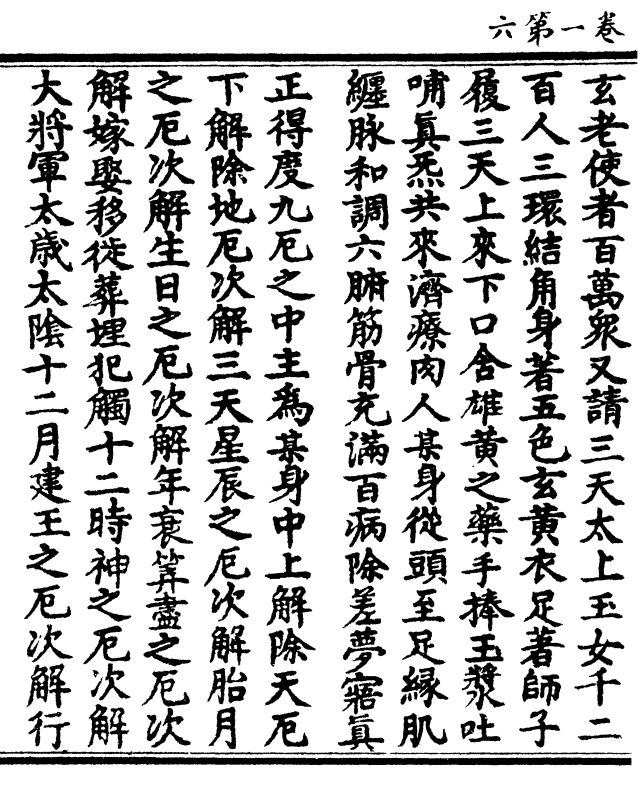 卷一第六
玄老使者百萬衆又請三天太上玉女千二
百人三環結角身著五色玄黄衣足著師子
履三天上來下口含雄黄之藥手捧玉漿吐
哺眞炁共來濟療肉人某身從頭至足縁肌
纏脉和調六腑筋骨充滿百病除差夢寤眞
正得度九厄之中主爲某身中上解除天厄
下解除地厄次解三天星辰之厄次解胎月
之厄次解生日之厄次解年衰筭盡之厄次
解嫁娶移徙葬埋犯觸十二時神之厄次解
大將軍太歳太陰十二月建王之厄次解行